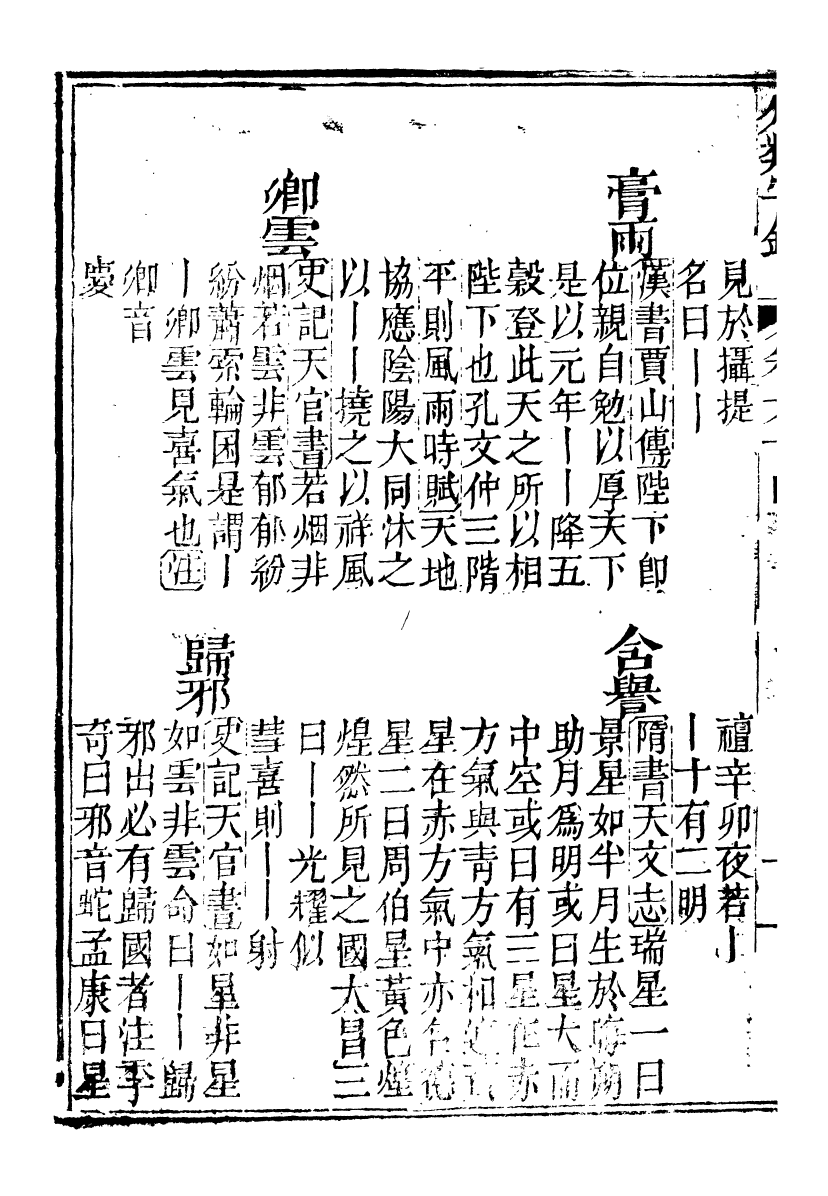 見於攝提
名曰丨丨
膏雨
漢書賈山傳陛下即
位親自勉以厚天下
是以元年丨丨降五
穀登此天之所以相
陛下也孔文仲三階
平則風雨時賦天地
協應陰陽大同休之
以丨丨撓之以祥風
卿雲
史記天官書若烟非
烟若雲非雲郁郁紛
紛蕭索輪囷是謂丨
丨卿雲見喜氣也注
卿音
慶
禋辛卯夜若丨
丨十有二明
含譽
隋書天文志瑞星一曰
景星如半月生於晦朔
助月爲明或曰星大而
中空或曰有三星在赤
方氣與靑方氣相連黃
星在赤方氣中亦名德
星二曰周伯星黃色煌
煌然所見之國大昌三
曰丨丨光耀似
彗喜則丨丨射
歸邪
史記天官書如星非星
如雲非雲命曰丨丨歸
邪出必有歸國者注李
奇曰邪音蛇孟康曰星